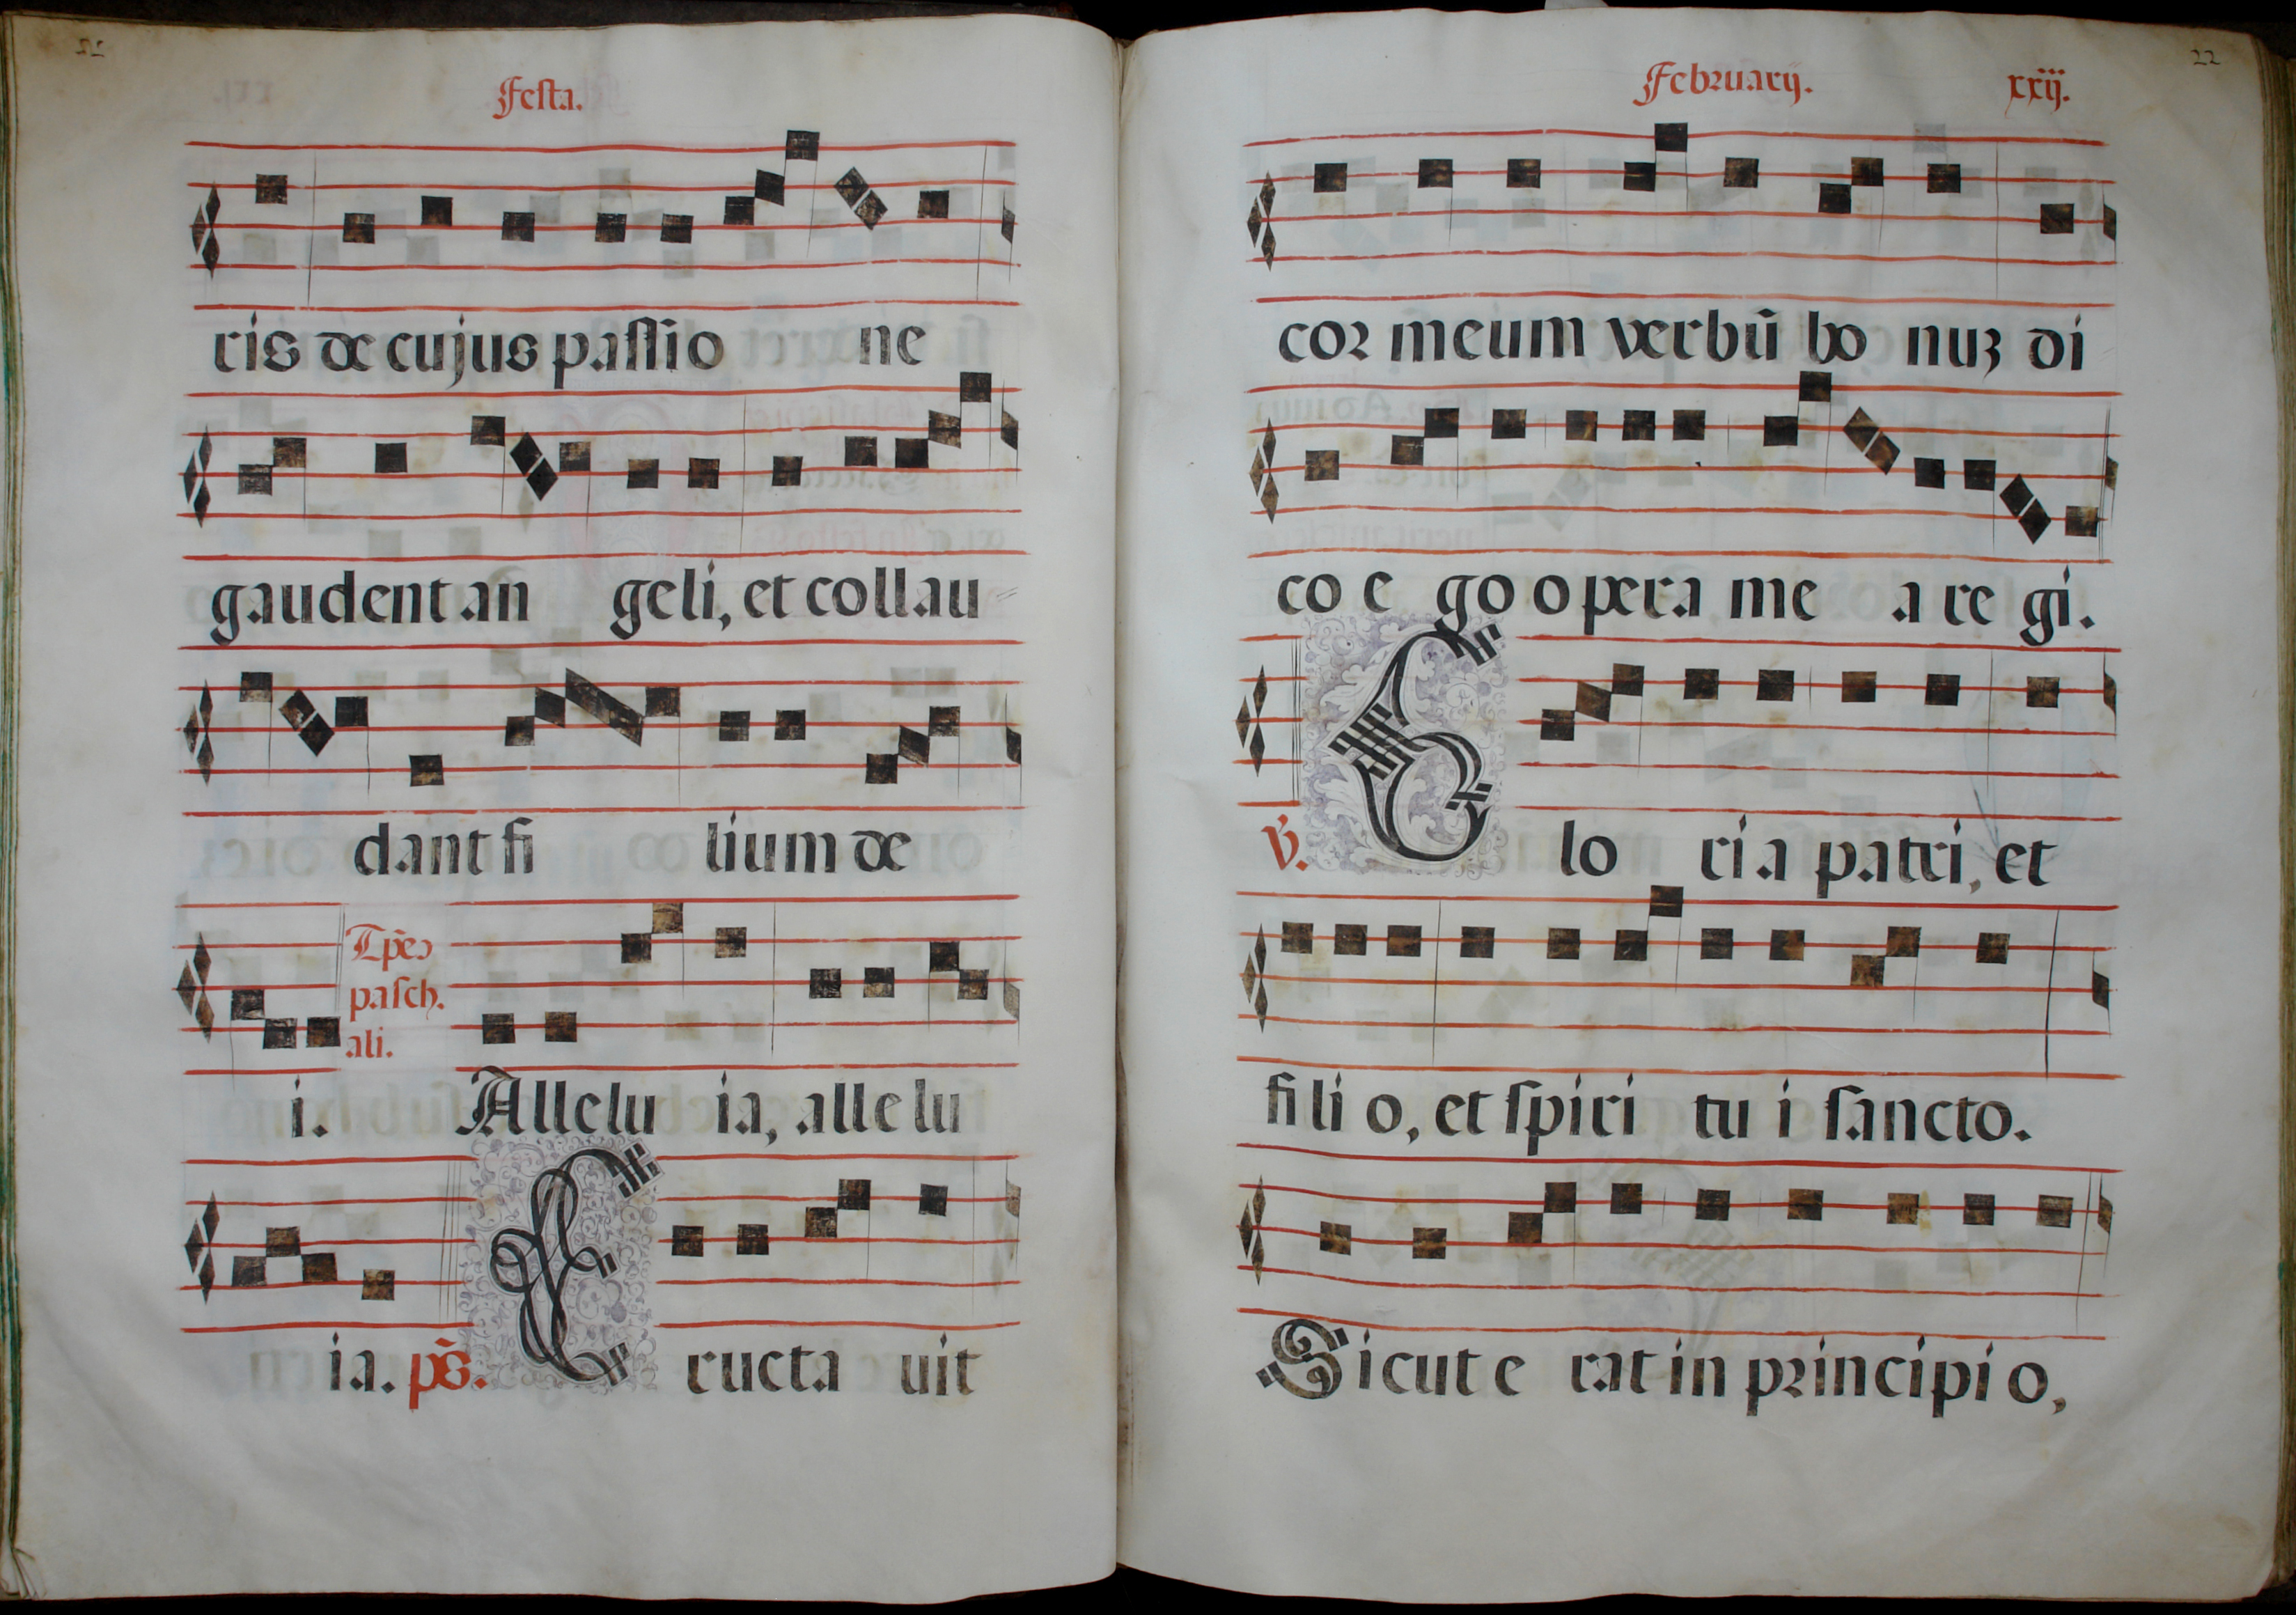 Festa.
ris de cujus passio ne
gaudent an geli, et collau
dant fi lium de
Tp̃e
pasch.
ali.
i. Allelu ia, alle lu
ia. ps̃. E ructa uit
22
Februarij.
xxij.
cor meum verbũ bo nuʒ di
co e go o pera me a re gi.
℣. G lo ri a patri, et
fi li o, et spiri tu i sancto.
Sicut e rat in principi o,